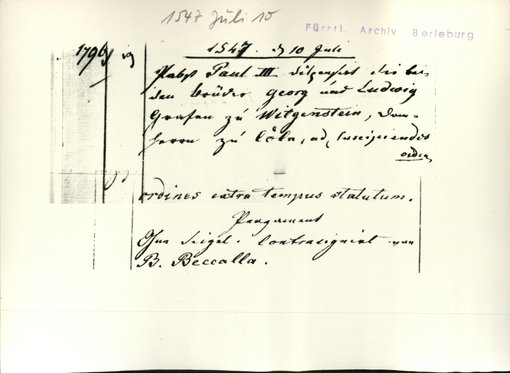 1547 Juli 10
Fürstl. Archiv Berleburg
1796
1547. d 10 Juli
Pabst Paul III dispensirt die bei-
den Brüder Georg und Ludwig
Grafen zu Witgenstein, Dom-
herrn zu Cöln, ad suscipiendos
ordin
ordines extra tempus statutum.
Pergament
Ohne Siegel. Contrasignirt von
B. Beccalla.